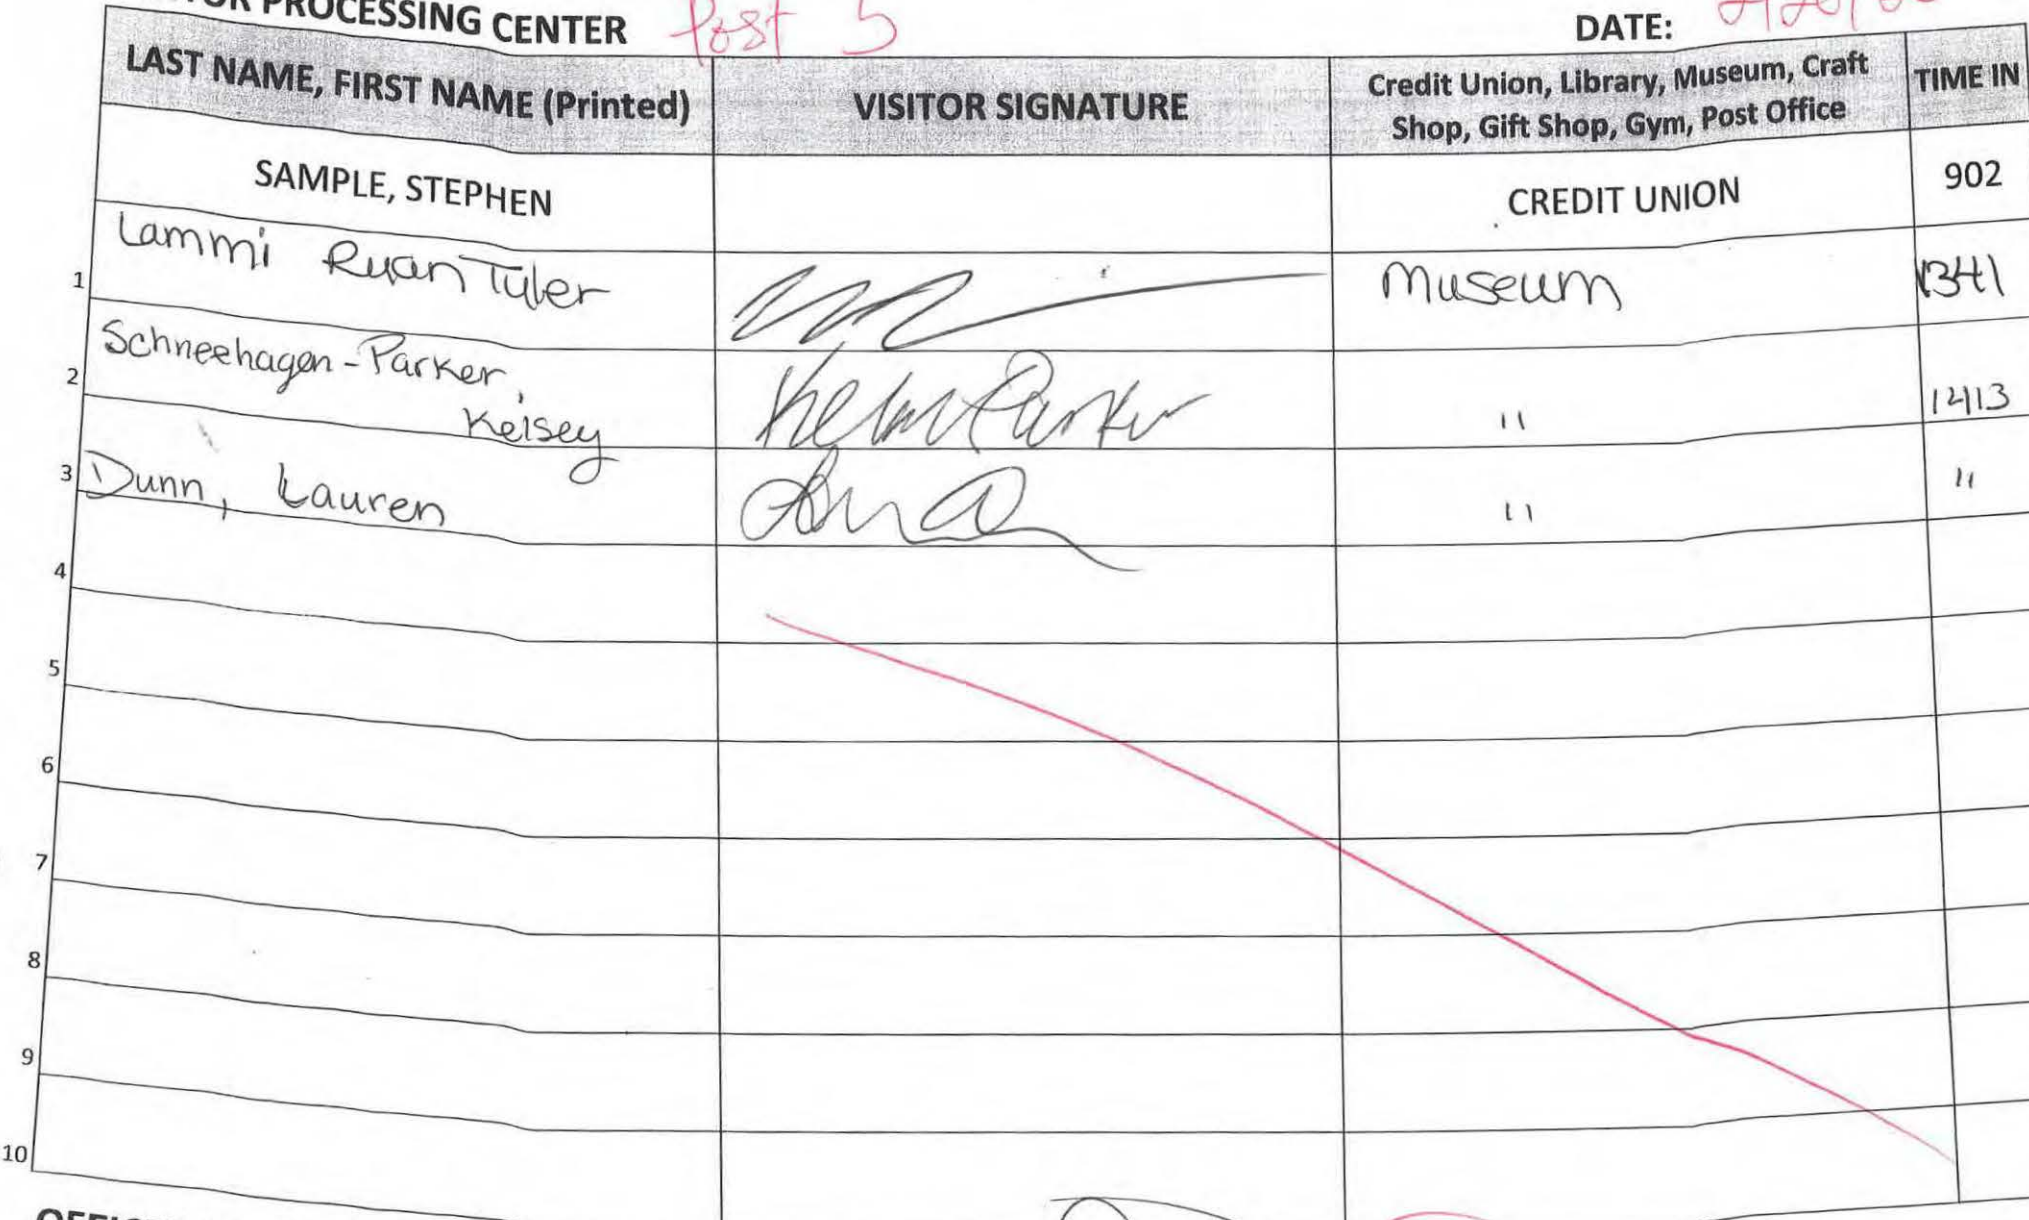 PROCESSING CENTER Post 5 DATE:
LAST NAME, FIRST NAME (Printed) VISITOR SIGNATURE Credit Union, Library, Museum, Craft Shop, Gift Shop, Gym, Post Office TIME IN
SAMPLE, STEPHEN CREDIT UNION 902
1 Lammi Ryan Tyler Museum 1341
2 Schneehagen-Parker, Kelsey Parker " 1413
3 Dunn, Lauren " "
4
5
6
7
8
9
10